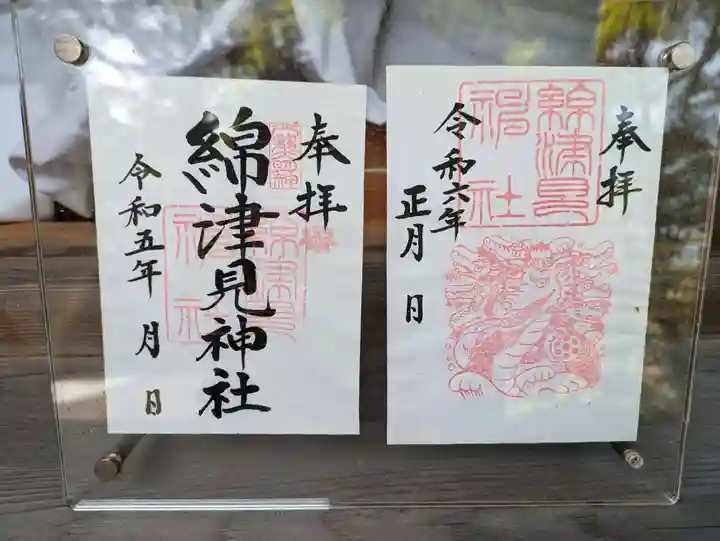 奉拝
綿津見神社
令和五年 月 日
奉拝
綿津見
神社
令和六年
正月 日